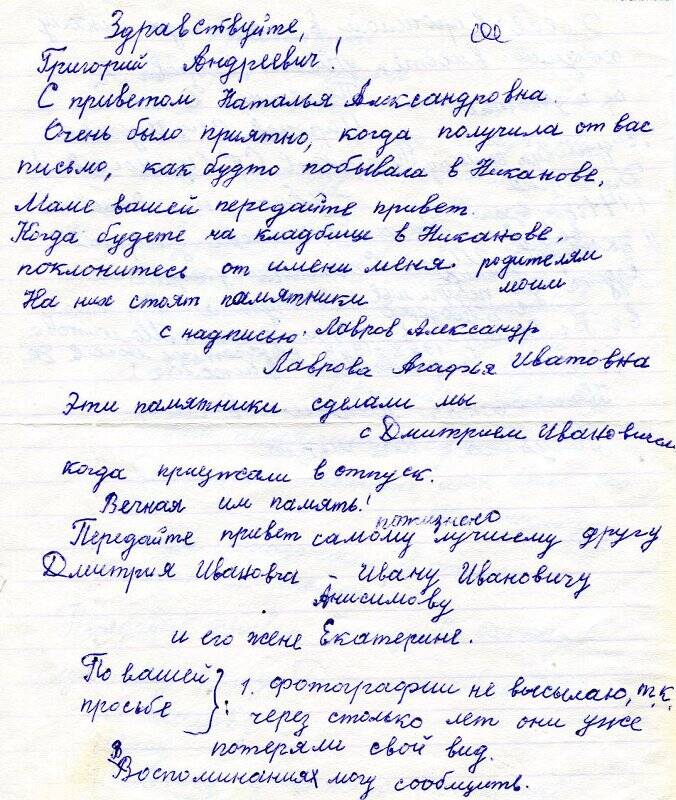 Здравствуйте,
Григорий Андреевич!
С приветом Наталья Александровна.
Очень было приятно, когда получила от вас
письмо, как будто побывала в Никанове.
Маме вашей передайте привет.
Когда будете на кладбище в Никанове,
поклонитесь от имени меня родителям
моим
На них стоят памятники
с надписью: Лавров Александр
Лаврова Агафья Ивановна
Эти памятники сделали мы
с Дмитрием Ивановичем
когда приезжали в отпуск.
Вечная им память!
пожизнено
Передайте привет самому лучшему другу
Дмитрия Ивановча – Ивану Ивановичу
Анисимову
и его жене Екатерине.
По вашей просьбе : 1. фотографии не высылаю, т.к.
через столько лет они уже
потеряли свой вид.
В Воспоминаниях могу сообщить.